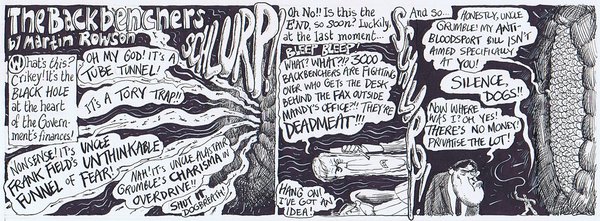 The Backbenchers
by Martin Rowson
What's this?
Crikey! It's the
BLACK HOLE
at the heart
of the Govern-
ment's finances!
OH MY GOD! IT'S A
TUBE TUNNEL!
IT'S A TORY TRAP!!
NONSENSE! IT'S UNCLE
FRANK FIELD'S UNTHINKABLE
FUNNEL OF FEAR!
NAH! IT'S UNCLE ALASTAIR
GRUMBLE'S CHARISMA IN
OVERDRIVE!!
SHUT IT,
DOGBREATH!
SCHLURP!
Oh No!! Is this the
END, so soon? Luckily,
at the last moment...
BLEEP BLEEP
WHAT? WHAT?!? 3000
BACKBENCHERS ARE FIGHTING
OVER WHO GETS THE DESK
BEHIND THE FAX OUTSIDE
MANDY'S OFFICE?! THEY'RE
DEADMEAT!!!
HANG ON!
I'VE GOT AN
IDEA!
SLURP!
And so...
HONESTLY, UNCLE
GRUMBLE! MY ANTI-
BLOODSPORT BILL ISN'T
AIMED SPECIFICALLY
AT YOU!
SILENCE,
DOGS!!
NOW WHERE
WAS I? OH YES!
THERE'S NO MONEY!
PRIVATISE THE LOT!